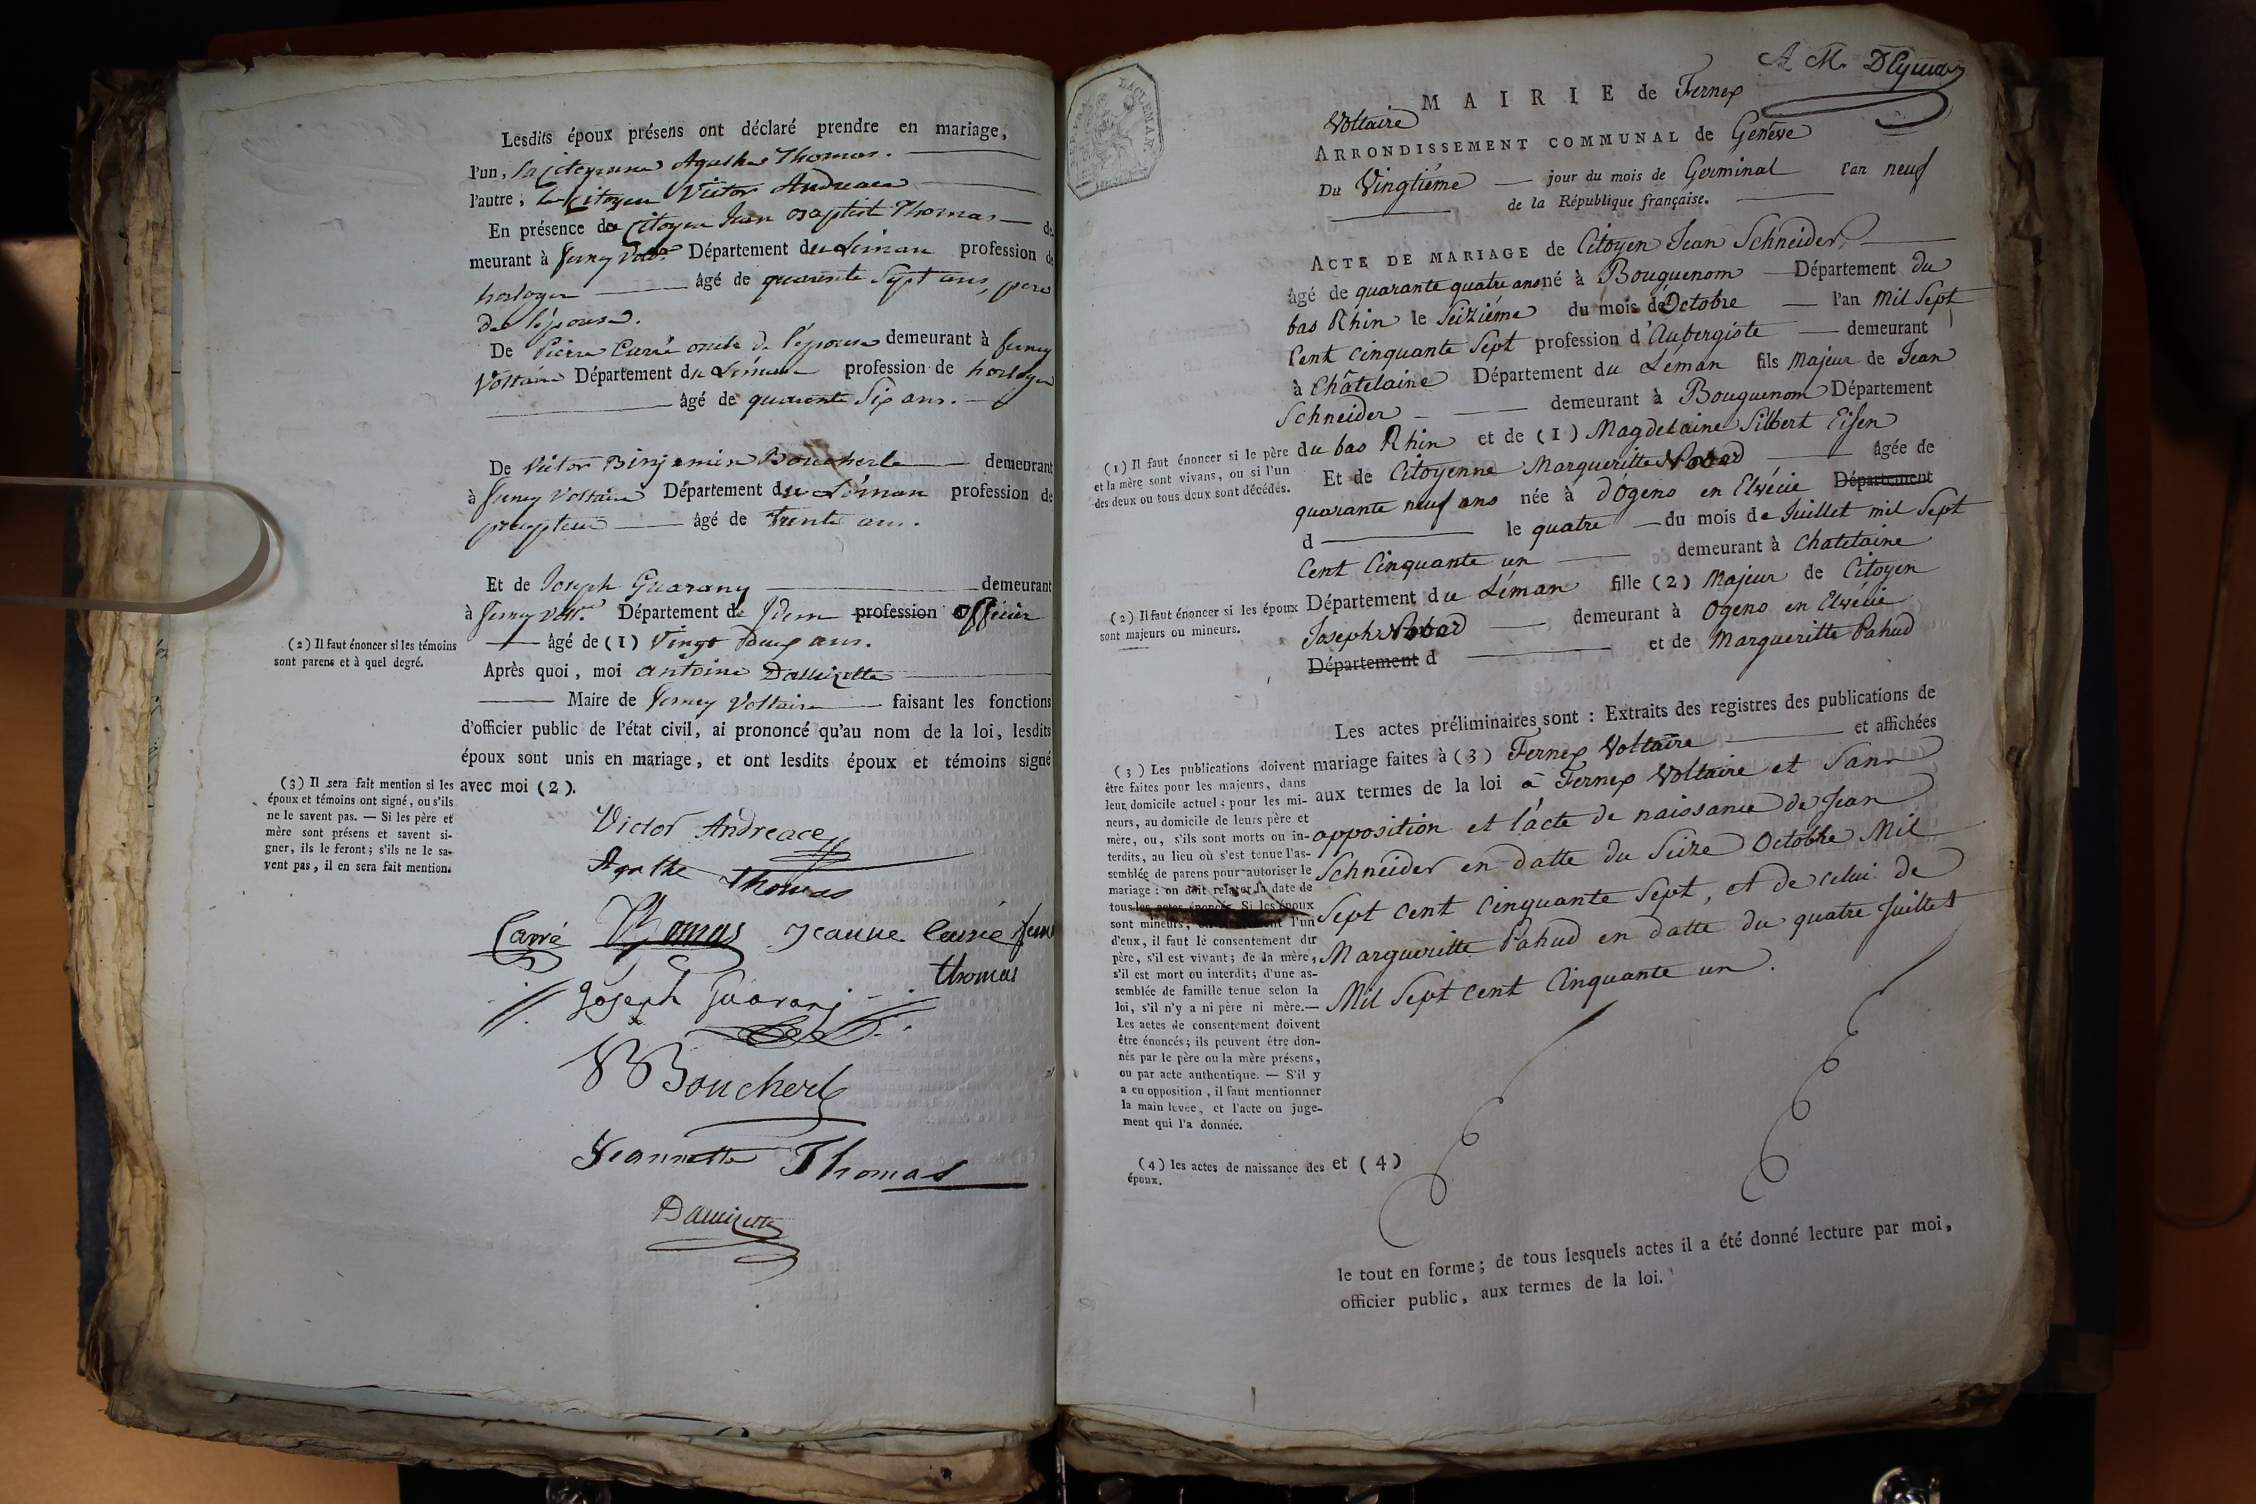 Lesdits époux présens ont déclaré prendre en mariage,
l'un, la Citoyenne Agathe Thomas.
l'autre, le Citoyen Victor Andreace
En présence de Citoyen Jean Baptiste Thomas de-
meurant à ferney Volt.re Département du Léman profession de
horloger âgé de quarente Sept ans, pere
de l'épouse.
De Pierre Carré oncle de l'épouse demeurant à ferney
Voltaire Département du Léman profession de horloger
âgé de quarente Six ans.
De Victor Binjamin Boucherle demeurant
à ferney Voltaire Département du Léman profession de
precepteur âgé de trente ans.
Et de Joseph Guarany demeurant
à ferney Volt.re Département de Idem profession officier
âgé de (1) Vingt ans.
(2) Il faut énoncer si les témoins
sont parens et à quel degré.
Après quoi, moi antoine Damizette
Maire de ferney Voltaire faisant les fonctions
d'officier public de l'état civil, ai prononcé qu'au nom de la loi, lesdits
époux sont unis en mariage, et ont lesdits époux et témoins signé
avec moi (2).
(3) Il sera fait mention si les
époux et témoins ont signé, ou s'ils
ne le savent pas. — Si les père et
mère sont présens et savent si-
gner, ils le feront; s'ils ne le sa-
vent pas, il en sera fait mention.
Victor Andreace
Agathe Thomas
Carré Thomas Jeanne Carré fem
thomas
Joseph Guarani
VBBoucherle
Jeannette Thomas
Damizette
A M.
LACLEMAN
MAIRIE de Fernex
Voltaire
ARRONDISSEMENT COMMUNAL de Genève
Du Vingtiéme jour du mois de Germinal l'an neuf
de la République française.
ACTE DE MARIAGE de Citoyen Jean Schneider,
âgé de quarante quatre ans né à Bouquenom Département du
bas Rhin le Seiziéme du mois d'Octobre l'an Mil Sept
Cent Cinquante Sept profession d'Aubergiste demeurant
à Châtelaine Département du Léman fils Majeur de Jean
Schneider demeurant à Bouquenom Département
du bas Rhin et de (1) Magdelaine Silbert Eisen
(1) Il faut énoncer si le père
et la mère sont vivans, ou si l'un
des deux ou tous deux sont décédés.
Et de Citoyenne Margueritte âgée de
quarante neuf ans née à d'Ogens en Elvécie Département
d le quatre du mois de Juillet mil Sept
Cent Cinquante un demeurant à Chatelaine
Département du Léman fille (2) Majeur de Citoyen
(2) Il faut énoncer si les époux
sont majeurs ou mineurs.
Joseph demeurant à Ogens en Elvécie
Département d et de Margueritte Pahud
Les actes préliminaires sont : Extraits des registres des publications de
mariage faites à (3) Fernex Voltaire et affichées
aux termes de la loi à Fernex Voltaire et Sans
opposition et l'acte de naissance de Jean
Schneider en datte du Seize Octobre Mil
Sept cent Cinquante Sept, et de celui de
Margueritte Pahud en datte du quatre Juillet
Mil Sept cent Cinquante un.
(3) Les publications doivent
être faites pour les majeurs, dans
leur domicile actuel; pour les mi-
neurs, au domicile de leurs père et
mère, ou, s'ils sont morts ou in-
terdits, au lieu où s'est tenue l'as-
semblée de parens pour autoriser le
mariage : on doit relater la date de
tous les actes énoncés. Si les époux
sont mineurs, l'un
d'eux, il faut le consentement du
père, s'il est vivant; de la mère,
s'il est mort ou interdit; d'une as-
semblée de famille tenue selon la
loi, s'il n'y a ni père ni mère.—
Les actes de consentement doivent
être énoncés; ils peuvent être don-
nés par le père ou la mère présens,
ou par acte authentique. — S'il y
a eu opposition, il faut mentionner
la main levée, et l'acte ou juge-
ment qui l'a donnée.
(4) les actes de naissance des
époux.
et (4)
le tout en forme; de tous lesquels actes il a été donné lecture par moi,
officier public, aux termes de la loi.